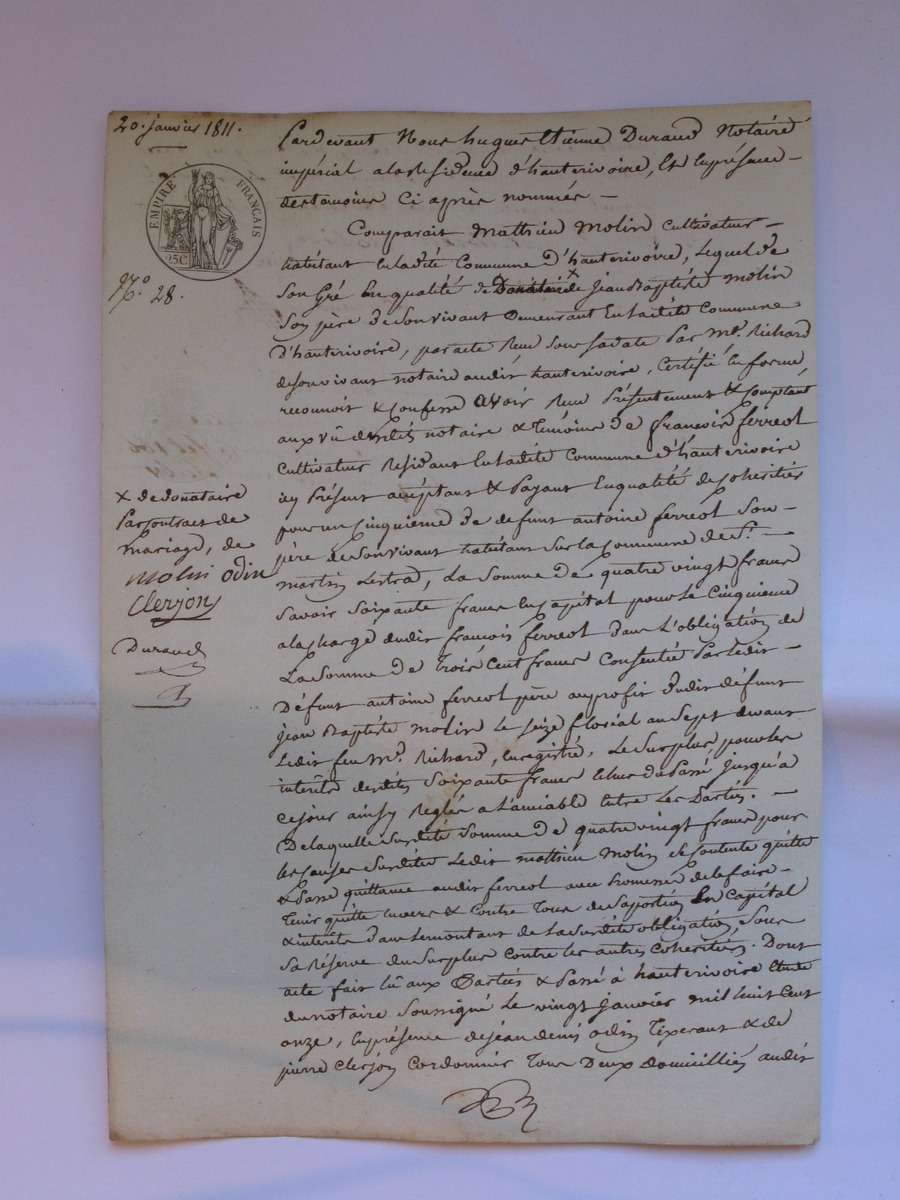 20. janvier 1811.
EMPIRE FRANÇAIS
25C
N.o 28.
Pardevant Nous hugues Etienne Durand Notaire
impérial a la residence d'hauterivoire, Et En présence
des témoins Ci après nommés
Comparait Matthieu Molin Cultivateur
habitant En ladite Commune d'hauterivoire, lequel de
son Gré En qualité de Donataire de jean Baptiste Molin
Son père de Son vivant Demeurant En ladite Commune
d'hauterivoire, par acte Reçu Sous sa date Par Me. Richard
de son vivant notaire audit hauterivoire, Certifié En forme,
reconnoit & Confesse avoir Reçu Présentement & Comptant
aux vû desdits notaire & témoins de françois ferreol
Cultivateur Residant En ladite Commune d'hauterivoire
icy Présent acceptant & Payant En qualité de Coheritier
pour un Cinquieme de defunt antoine ferreol Son
père de Son vivant habitant Sur la Commune de St.
martin Lestra, La Somme de quatre vingt francs
Savoir Soixante francs En Capital pour le Cinquieme
a la Charge dudit françois ferreol Dans L'obligation de
La Somme de Trois Cent francs Consentie Par ledit
Défunt antoine ferreol père au profit dudit défunt
jean Baptiste Molin le Seize floréal an Sept devant
Ledit feu Me. Richard, Enregistré, Le Surplus pour les
interêts desdits Soixante francs Echus du Passé jusqu'à
ce jour ainsy Reglés a L'amiable Entre Les Parties.
De laquelle Susdite Somme De quatre vingt francs pour
les Causes Susdites Ledit matthieu Molin Se Contente quitte
& Passe quittance audit ferreol avec Promesse de le faire
tenir quitte Envers & Contre Tous de Sa portion En Capital
& interêts Dans le montant de La Susdite obligation, Sous
Sa Réserve du Surplus Contre les autres Coheritiers. Dont
acte fait lû aux Parties & Passé à hauterivoire Etude
du notaire Soussigné Le vingt janvier mil huit Cent
onze, En présence de jean denis odin Tixerant & de
pierre Clerjon Cordonnier Tous Deux domiciliés audit
x de donataire
Par contract de
Mariage, de
Molin Odin
Clerjon
Durand